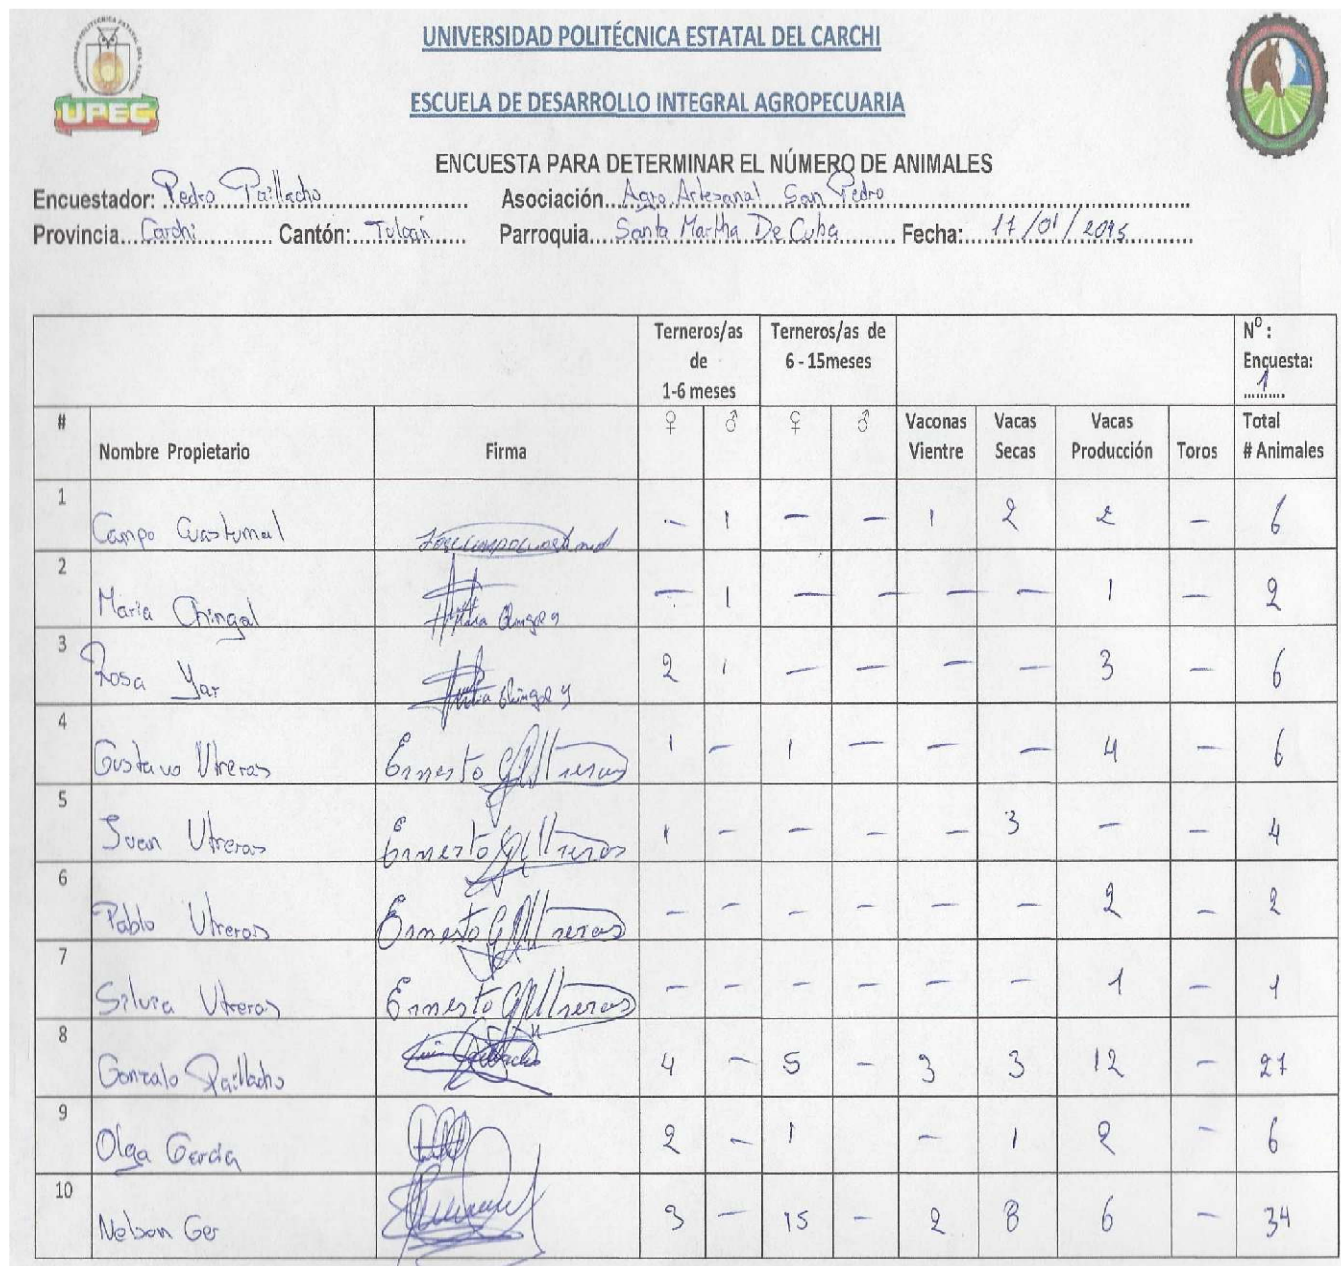 UNIVERSIDAD POLITÉCNICA ESTATAL DEL CARCHI
UPEC
ESCUELA DE DESARROLLO INTEGRAL AGROPECUARIA
ENCUESTA PARA DETERMINAR EL NÚMERO DE ANIMALES
Encuestador: Pedro Paillacho Asociación Agro Artesanal San Pedro
Provincia Carchi Cantón: Tulcán Parroquia Santa Martha De Cuba Fecha: 17/01/2015
Terneros/as de 1-6 meses Terneros/as de 6 - 15meses N° : Encuesta: 1
# Nombre Propietario Firma ♀ ♂ ♀ ♂ Vaconas Vientre Vacas Secas Vacas Producción Toros Total # Animales
1 Campo Cuastumal - 1 - - 1 2 2 - 6
2 Maria Chingal - 1 - - - - 1 - 2
3 Rosa Yar 2 1 - - - - 3 - 6
4 Gustavo Utreras Ernesto G Utreras 1 - 1 - - - 4 - 6
5 Juan Utreras Ernesto G Utreras 1 - - - - 3 - - 4
6 Pablo Utreras Ernesto G Utreras - - - - - - 2 - 2
7 Silvia Utreras Ernesto G Utreras - - - - - - 1 - 1
8 Gonzalo Paillacho 4 - 5 - 3 3 12 - 27
9 Olga Garcia 2 - 1 - 1 2 - 6
10 Nelson Ger 3 - 15 - 2 8 6 - 34